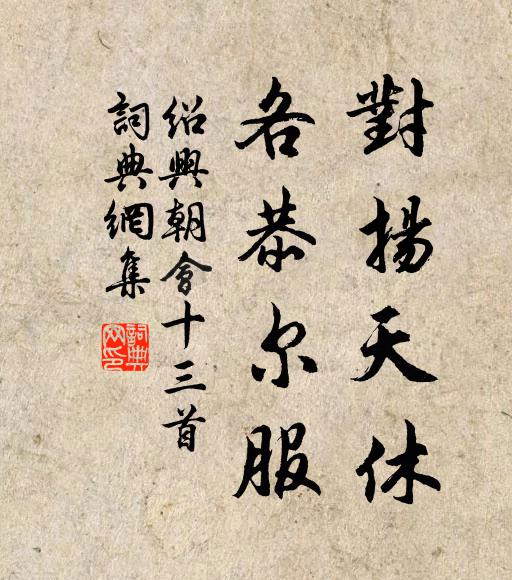 對揚天休
各恭尔服
绍興朝會十三首
詞典網集
詞典網印